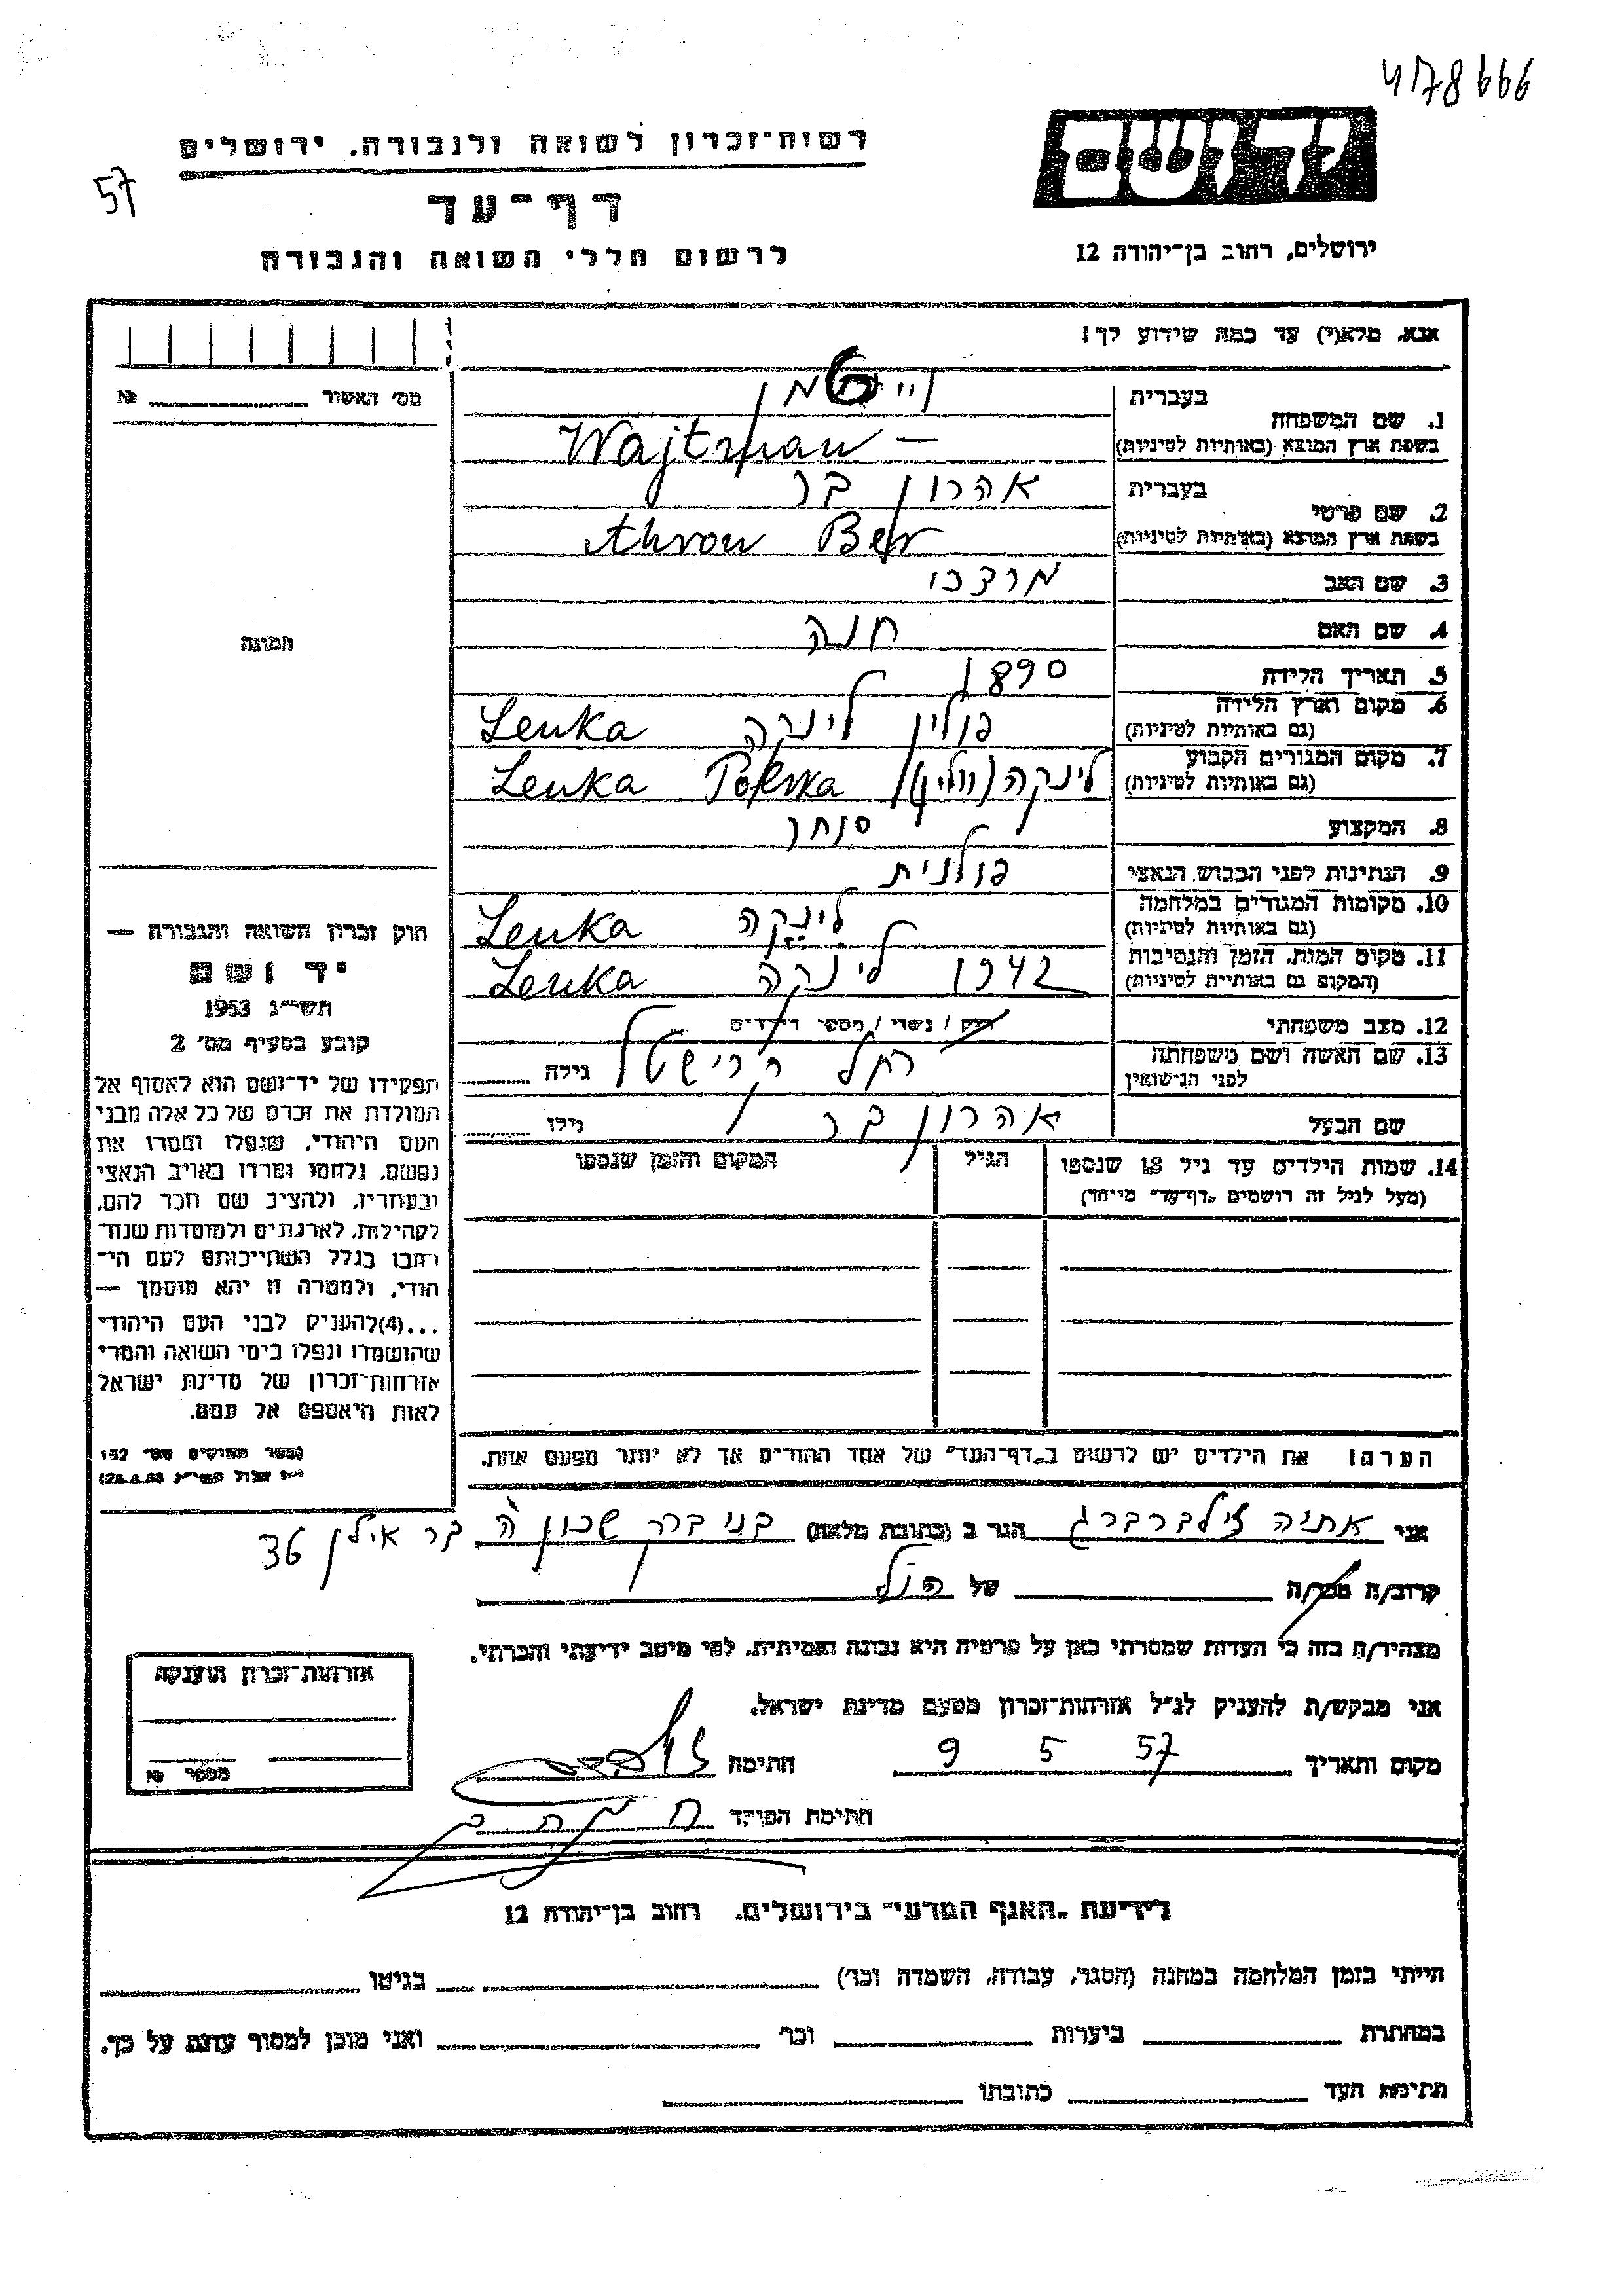 4178666
ידושם
ירושלים, רחוב בן־יהודה 12
רשות־זכרון לשואה ולגבורה, ירושלים
57
דף־עד
לרשום חללי השואה והגבורה
אנא, מלא(י) עד כמה שידוע לך!
מס' האשור № 
1. שם המשפחה
בעברית וייטמן
בשפת ארץ המוצא (באותיות לטיניות) Wajtman –
2. שם פרטי
בעברית אהרון בר
בשפת ארץ המוצא (באותיות לטיניות) Ahron Ber
3. שם האב מרדכי
4. שם האם חנה
5. תאריך הלידה 1890
6. מקום וארץ הלידה
(גם באותיות לטיניות) פולין לינקה Lenka
7. מקום המגורים הקבוע
(גם באותיות לטיניות) לינקה (ווולין) Lenka Polska
8. המקצוע סוחר
9. הנתינות לפני הכבוש הנאצי פולנית
10. מקומות המגורים במלחמה
(גם באותיות לטיניות) לינקה Lenka
11. מקום המות, הזמן והנסיבות
(המקום גם באותיות לטיניות) 1942 לינקה Lenka
12. מצב משפחתי רוק / נשוי / מספר הילדים
13. שם האשה ושם משפחתה
לפני הנישואין רחל גילה
שם הבעל אהרון בר גילו
14. שמות הילדים עד גיל 18 שנספו
(מעל לגיל זה רושמים „דף־עד" מיוחד)
הגיל
המקום והזמן שנספו
הערה: את הילדים יש לרשום ב„דף־העד" של אחד ההורים אך לא יותר מפעם אחת.
תמונה
חוק זכרון השואה והגבורה —
יד ושם
תשי"ג 1953
קובע בסעיף מס' 2
תפקידו של יד־ושם הוא לאסוף אל
המולדת את זכרם של כל אלה מבני
העם היהודי, שנפלו ומסרו את
נפשם, נלחמו ומרדו באויב הנאצי
ובעוזריו, ולהציב שם וזכר להם,
לקהילות, לארגונים ולמוסדות שנח־
רבו בגלל השתייכותם לעם הי־
הודי, ולמטרה זו יהא מוסמך —
...(4)להעניק לבני העם היהודי
שהושמדו ונפלו בימי השואה והמרי
אזרחות־זכרון של מדינת ישראל
לאות היאספם אל עמם.
(ספר החוקים מס' 132
אני אתיה זילברברג הגר ב (כתובת מלאה) בני ברק שכון ה' בר אילן 36
קרוב/ה מכר/ה של
מצהיר/ה בזה כי העדות שמסרתי כאן על פרטיה היא נכונה ואמיתית, לפי מיטב ידיעתי והכרתי.
אני מבקש/ת להעניק לנ"ל אזרחות־זכרון מטעם מדינת ישראל.
מקום ותאריך 57 5 9 חתימה
חתימת הפוקד
אזרחות־זכרון הוענקה
מספר №
לידיעת „האגף המדעי" בירושלים, רחוב בן־יהודה 12
הייתי בזמן המלחמה במחנה (הסגר, עבודה, השמדה וכו') בגיטו
במחתרת ביערות וכו' ואני מוכן למסור עדות על כך.
חתימת העד כתובתו